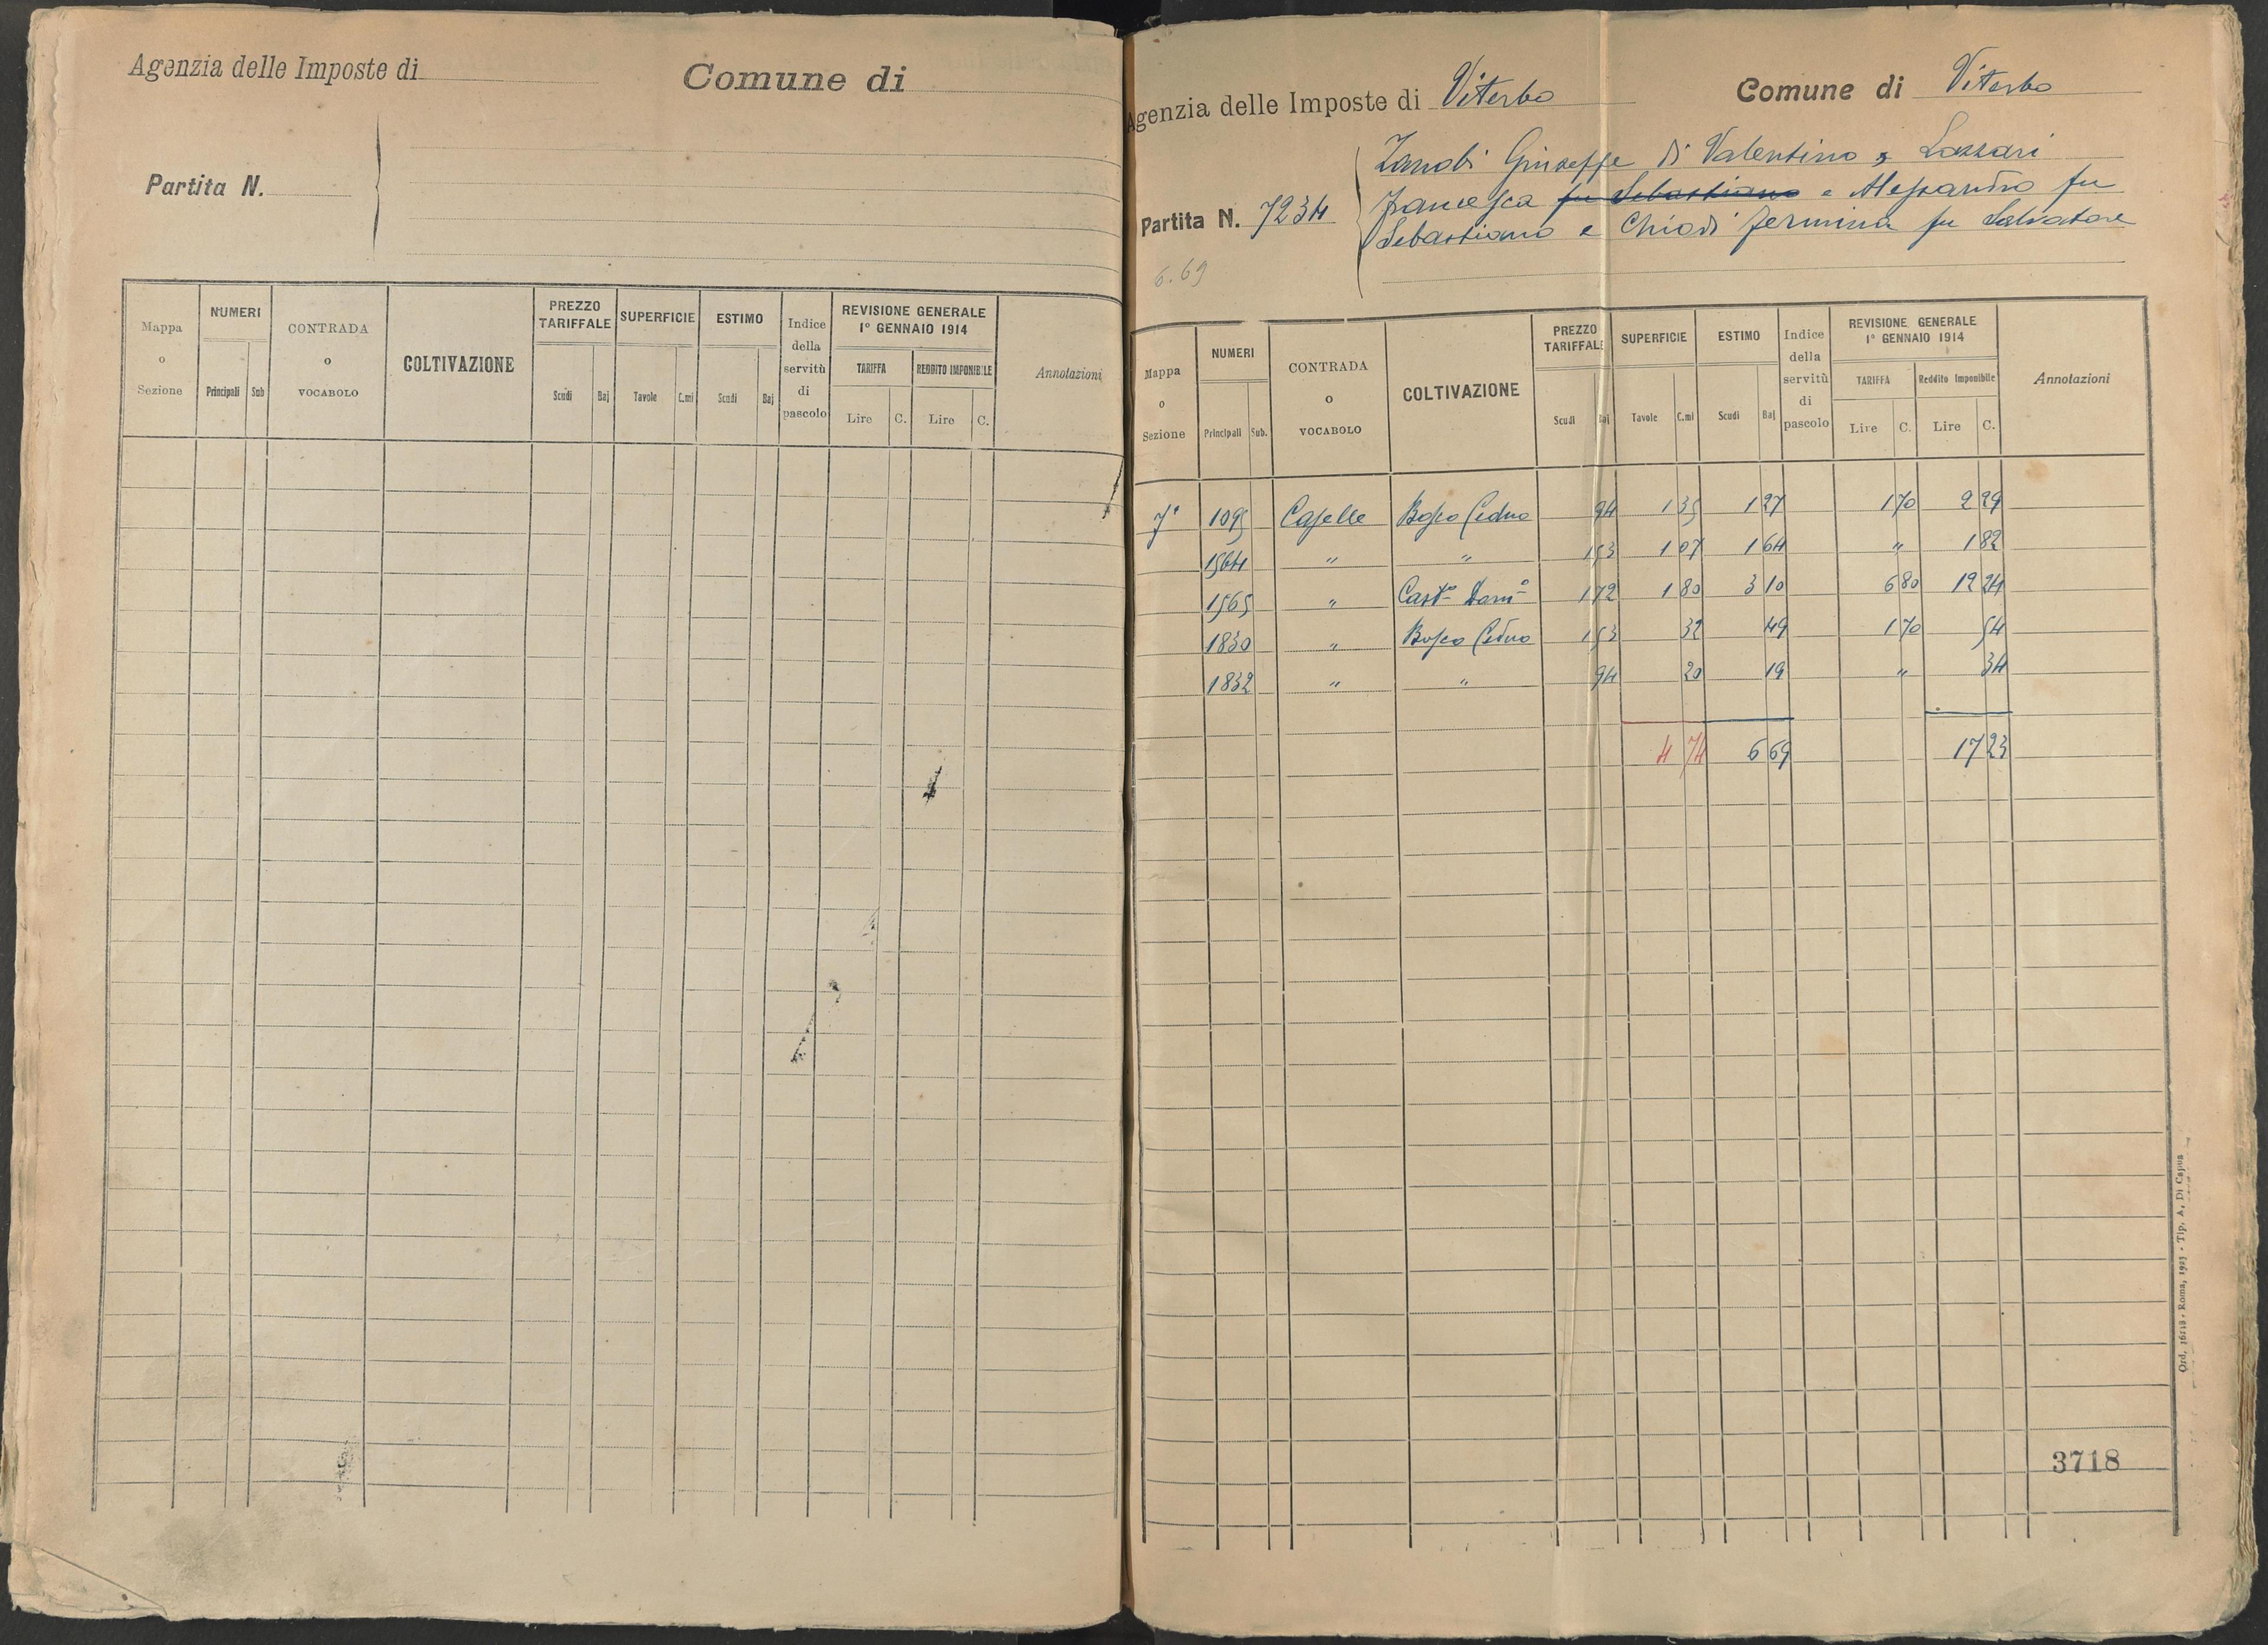 Agenzia delle Imposte di
Comune di
Partita N.
Mappa o Sezione
NUMERI
Principali Sub
CONTRADA o VOCABOLO
COLTIVAZIONE
PREZZO TARIFFALE
Scudi Baj
SUPERFICIE
Tavole C.mi
ESTIMO
Scudi Baj
Indice della servitù di pascolo
REVISIONE GENERALE
1° GENNAIO 1914
TARIFFA
Lire C.
REDDITO IMPONIBILE
Lire C.
Annotazioni
Agenzia delle Imposte di Viterbo
Comune di Viterbo
Zanobi Giuseppe di Valentino, Lazzari
Partita N. 7234
Francesca fu Sebastiano e Alessandro fu
Sebastiano e Chiodi Fermina fu Salvatore
6.69
Mappa o Sezione
NUMERI
Principali Sub.
CONTRADA o VOCABOLO
COLTIVAZIONE
PREZZO TARIFFALE
Scudi Baj
SUPERFICIE
Tavole C.mi
ESTIMO
Scudi Baj
Indice della servitù di pascolo
REVISIONE GENERALE
1° GENNAIO 1914
TARIFFA
Lire C.
Reddito Imponibile
Lire C.
Annotazioni
7ª 1095 Caselle Bosco Ceduo 94 1 35 1 27 1 70 2 29
1564 " " 1 53 1 07 1 64 " 1 82
1565 " Cast° Dom° 1 72 1 80 3 10 6 80 12 24
1830 " Bosco Ceduo 1 53 32 49 1 70 54
1832 " " 94 20 19 " 34
4 74 6 69 17 23
3718
Ord. 16518 - Roma, 1923 - Tip. A. Di Capua